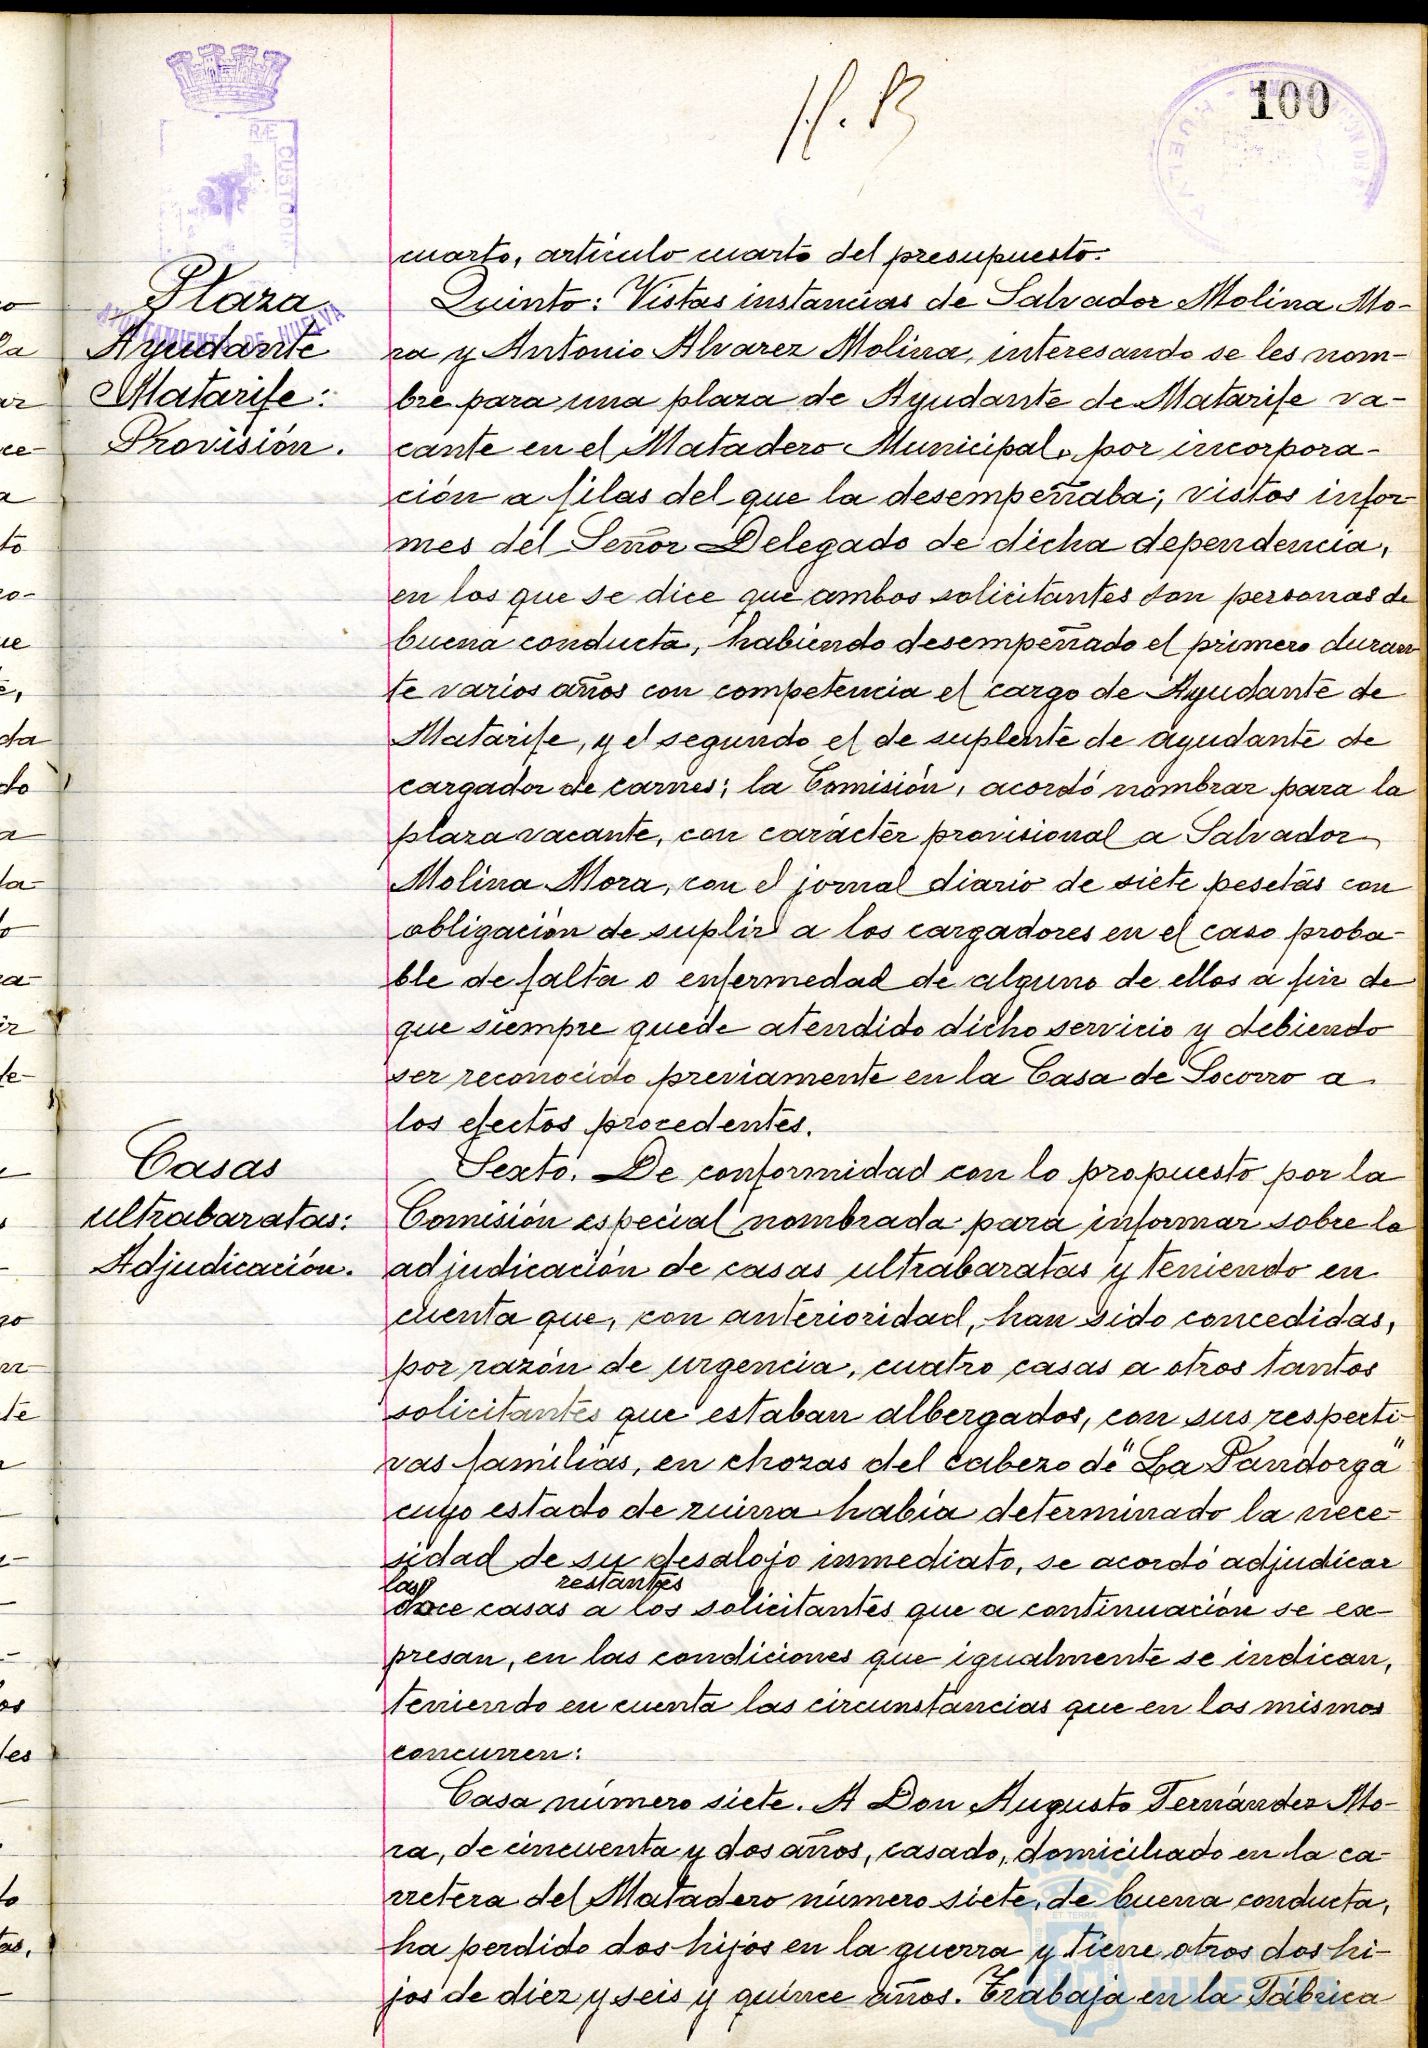 100
cuarto, artículo cuarto del presupuesto.
Plaza
Ayudante
Matarife:
Provisión.
Quinto: Vistas instancias de Salvador Molina Mo-
ra y Antonio Alvarez Molina, interesando se les nom-
bre para una plaza de Ayudante de Matarife va-
cante en el Matadero Municipal, por incorpora-
ción a filas del que la desempeñaba; vistos infor-
mes del Señor Delegado de dicha dependencia,
en los que se dice que ambos solicitantes son personas de
buena conducta, habiendo desempeñado el primero duran-
te varios años con competencia el cargo de Ayudante de
Matarife, y el segundo el de suplente de ayudante de
cargador de carnes; la Comisión, acordó nombrar para la
plaza vacante, con carácter provisional a Salvador
Molina Mora, con el jornal diario de siete pesetas con
obligación de suplir a los cargadores en el caso proba-
ble de falta o enfermedad de alguno de ellos a fin de
que siempre quede atendido dicho servicio y debiendo
ser reconocido previamente en la Casa de Socorro a
los efectos procedentes.
Casas
ultrabaratas:
Adjudicación.
Sexto. De conformidad con lo propuesto por la
Comisión especial nombrada para informar sobre la
adjudicación de casas ultrabaratas y teniendo en
cuenta que, con anterioridad, han sido concedidas,
por razón de urgencia, cuatro casas a otros tantos
solicitantes que estaban albergados, con sus respecti-
vas familias, en chozas del cabezo de "La Pandorga"
cuyo estado de ruina había determinado la nece-
sidad de su desalojo inmediato, se acordó adjudicar
las restantes
doce casas a los solicitantes que a continuación se ex-
presan, en las condiciones que igualmente se indican,
teniendo en cuenta las circunstancias que en los mismos
concurren:
Casa número siete. A Don Augusto Fernández Mo-
ra, de cincuenta y dos años, casado, domiciliado en la ca-
rretera del Matadero número siete, de buena conducta,
ha perdido dos hijos en la guerra y tiene otros dos hi-
jos de diez y seis y quince años. Trabaja en la Fábrica
AYUNTAMIENTO DE HUELVA